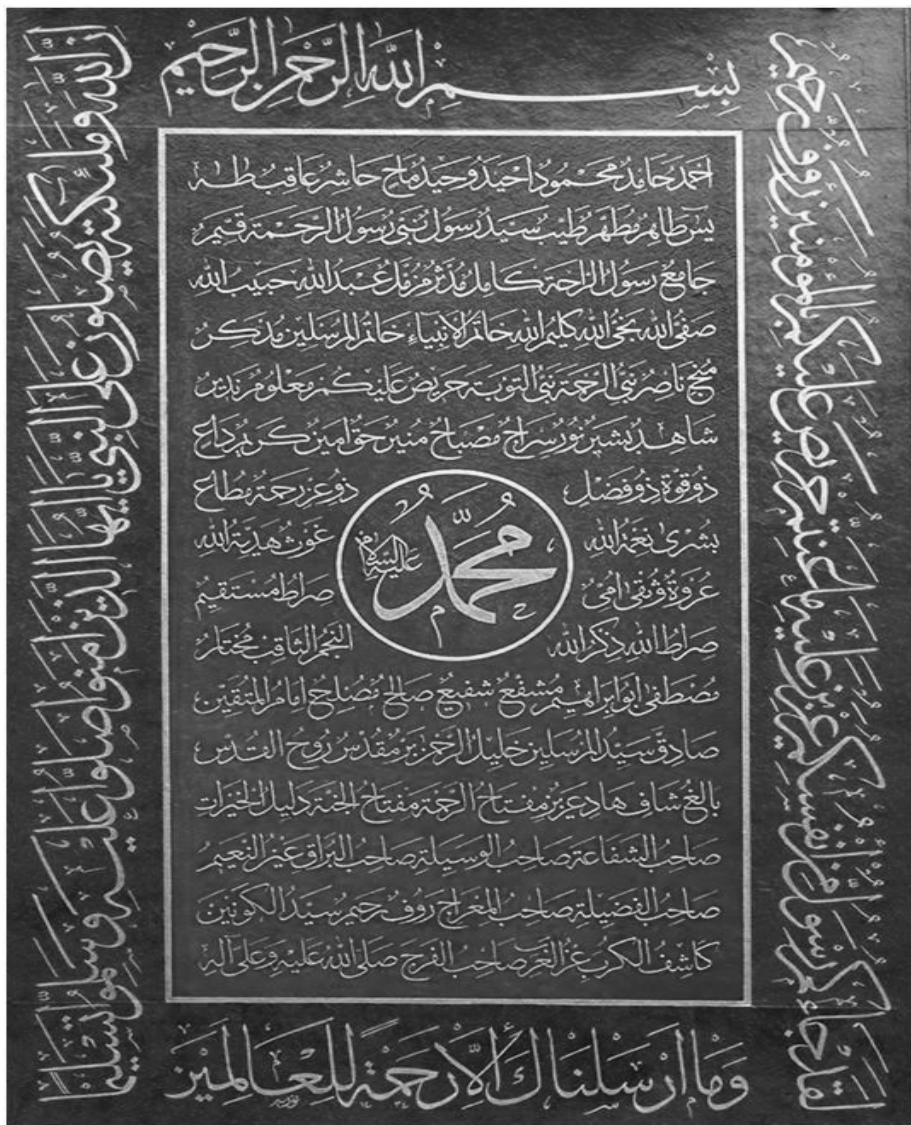 بِسْمِ اللهِ الرَّحْمٰنِ الرَّحِيمِ
لقد جاءكم رسول من انفسكم عزيز عليه ما عنتم حريص عليكم بالمؤمنين رؤوف رحيم
احمد حامد محمود احيد وحيد ماح حاشر عاقب طه
يس طاهر مطهر طيب سيد رسول نبى رسول الرحمة قيم
جامع رسول الراحة كامل مدثر مزمل عبد الله حبيب الله
صفى الله نجى الله كليم الله خاتم الانبياء خاتم المرسلين مذكر
منج ناصر نبى الرحمة نبى التوبة حريص عليكم معلوم نذير
شاهد بشير نور سراج مصباح منير حق امين كريم داع
ذو قوة ذو فضل ذو عز رحمة مطاع
بشرى نعمة الله غوث هدية الله
عروة وثقى امى صراط مستقيم
صراط الله ذكر الله النجم الثاقب مختار
محمد عليه السلام
مصطفى ابو ابراهيم مشفع شفيع صالح مصلح امام المتقين
صادق سيد المرسلين خليل الرحمن بر مقدس روح القدس
بالغ شاف هاد عزيز مفتاح الرحمة مفتاح الجنة دليل الخيرات
صاحب الشفاعة صاحب الوسيلة صاحب البراق عين النعيم
صاحب الفضيلة صاحب المعراج رؤوف رحيم سيد الكونين
كاشف الكرب عز الغرب صاحب الفرج صلى الله عليه وعلى اله
ان الله وملئكته يصلون على النبي يا ايها الذين امنوا صلوا عليه وسلموا تسليما
وما ارسلناك الا رحمة للعالمين